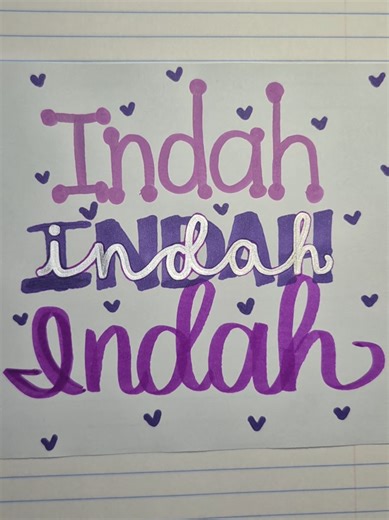 Indah
INDAH
indah
Indah